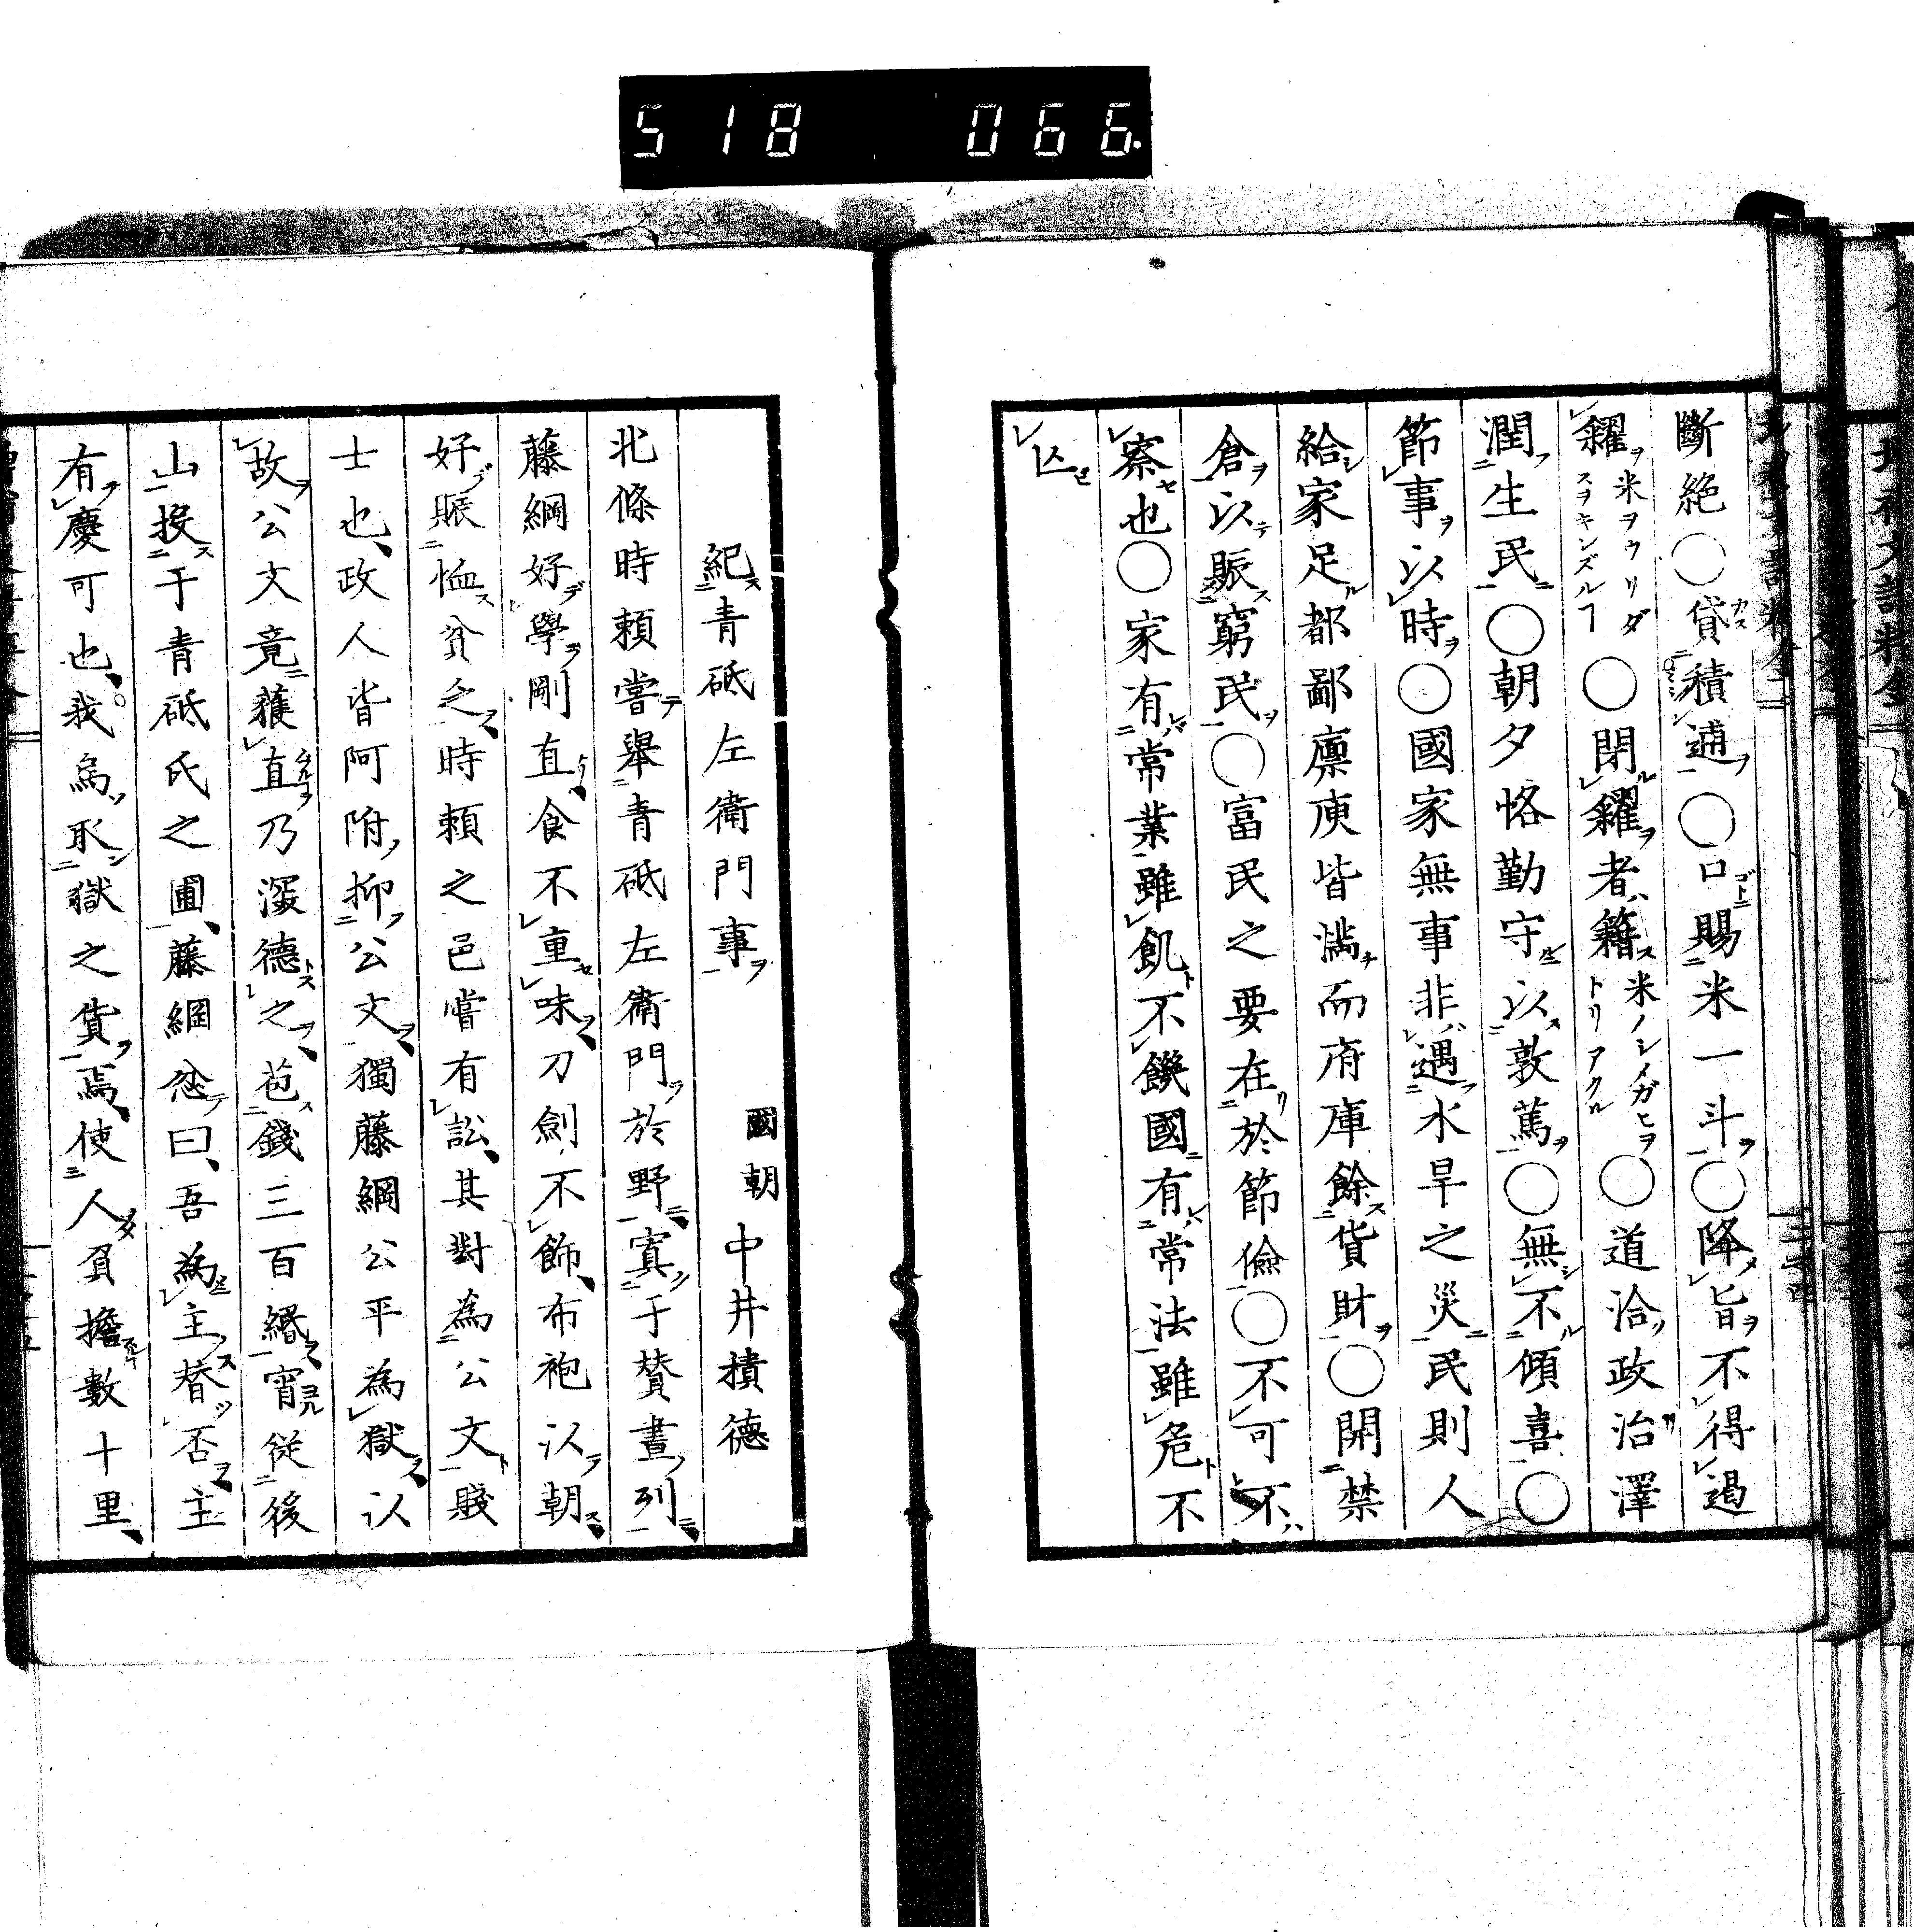 518 066.
斷絶○貸積逋○口賜米一斗○降旨不得遏
糴米ヲウリダスヲキンズルヿ○閉糴者籍米ノシメガヒヲトリアクル○道洽政治澤
潤生民○朝夕恪勤守以敦篤○無不傾喜○
節事以時○國家無事非遇水旱之災民則人
給家足都鄙廩庾皆滿而府庫餘貨財○開禁
倉以賑窮民○富民之要在於節儉○不可不
察也○家有常業雖飢不饑國有常法雖危不
亾
紀青砥左衛門事 國朝 中井積德
北條時頼嘗舉青砥左衛門於野寘于賛畫列
藤綱好學剛直食不重味刀劍不飾布袍以朝
好賑恤貧乏時頼之邑嘗有訟其對為公文賤
士也政人皆阿附抑公文獨藤綱公平為獄以
故公文竟獲直乃深德之苞錢三百緡宵從後
山投于青砥氏之圃藤綱忿曰吾為主替否主
有慶可也我焉取獄之貨焉使人負擔數十里